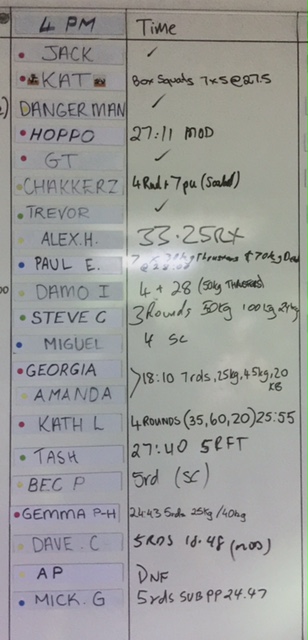 4 PM Time
JACK ✓
KAT Box Squats 7x5@27.5
DANGERMAN ✓
HOPPO 27:11 MOD
GT ✓
CHAKKERZ 4 Rnd + 7 pu (Scaled)
TREVOR ✓
ALEX.H. 33.25RX
PAUL E.
DAMO I 4 + 28 (50kg THRUSTERS)
STEVE C 3 Rounds 50kg 100kg 24kg
MIGUEL 4 SC
GEORGIA
18:10 7rds, 25kg, 45kg, 20 KB
AMANDA
KATH L 4 ROUNDS (35, 60, 20) 25:55
TASH 27:40 5RFT
BEC P 5rd (SC)
GEMMA P-H 24:43 5rds 25kg/40kg
DAVE.C 5RDS 18.48 (MOD)
AP DNF
MICK.G 5rds SUB PP 24.47